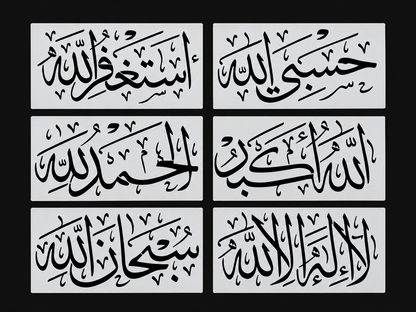 حسبي الله
أستغفر الله
الله أكبر
الحمد لله
لا إله إلا الله
سبحان الله